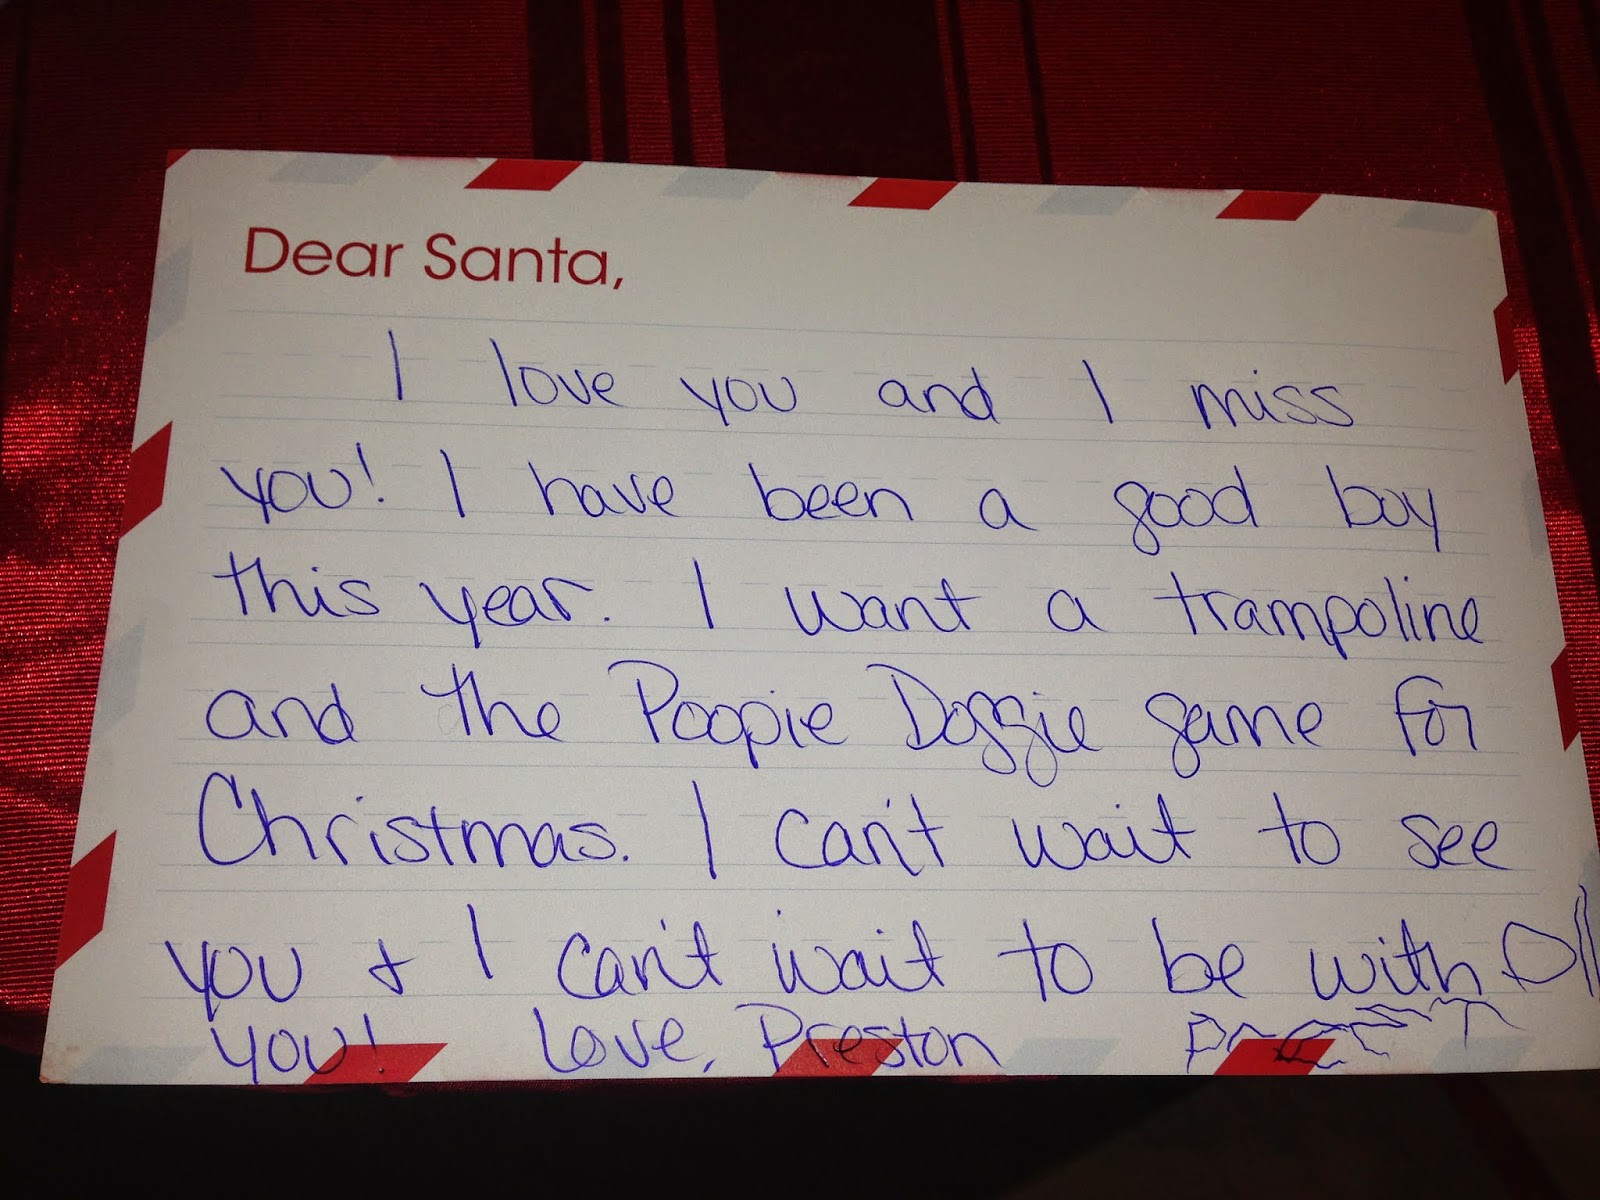 Dear Santa,
I love you and I miss
you! I have been a good boy
this year. I want a trampoline
and the Poopie Doggie game for
Christmas. I can't wait to see
you & I can't wait to be with
you! Love, Preston